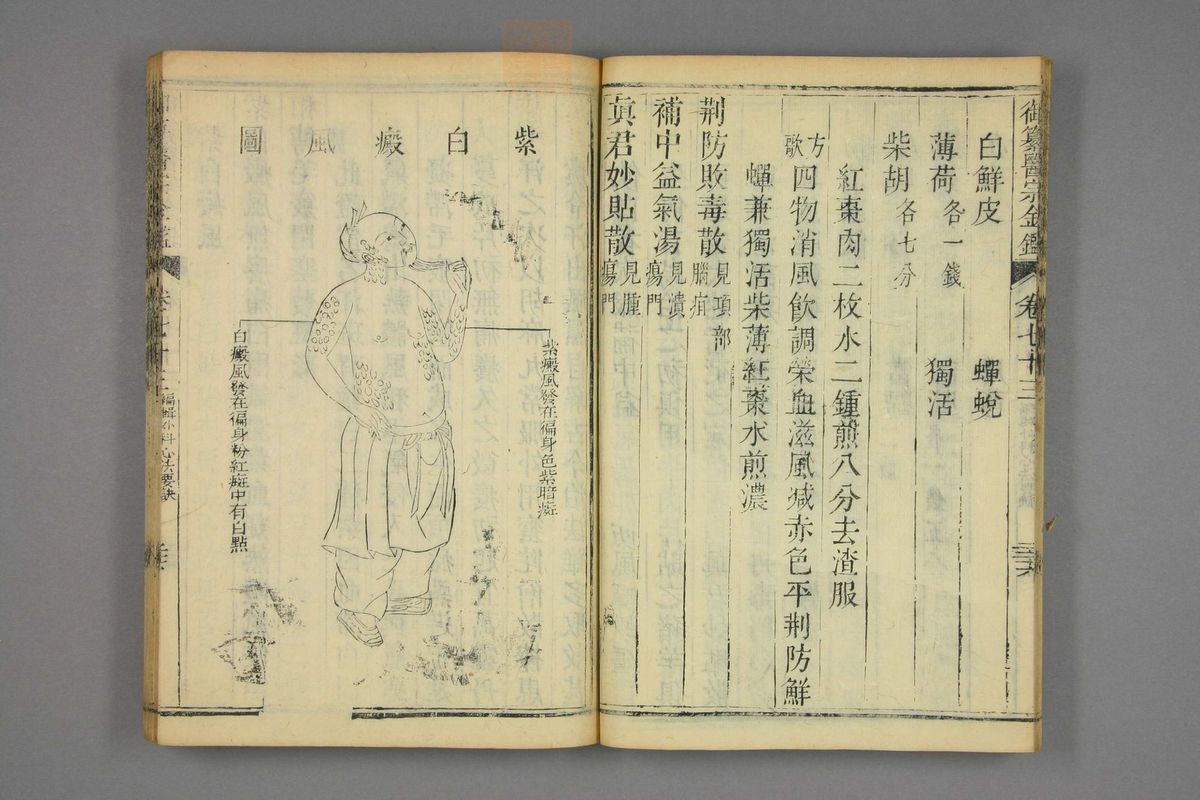 御纂醫宗金鑑 卷七十三 二六
白鮮皮 蟬蛻
薄荷各一錢 獨活
柴胡各七分
紅棗肉二枚水二鍾煎八分去渣服
方歌 四物消風飲調榮血滋風減赤色平荆防鮮
蟬兼獨活柴薄紅棗水煎濃
荆防敗毒散見項部腦疽
補中益氣湯見潰瘍門
真君妙貼散見腫瘍門
紫白癜風圖
紫癜風發在徧身色紫暗斑
白癜風發在徧身粉紅斑中有白點
卷七十三 編輯外科心法要訣